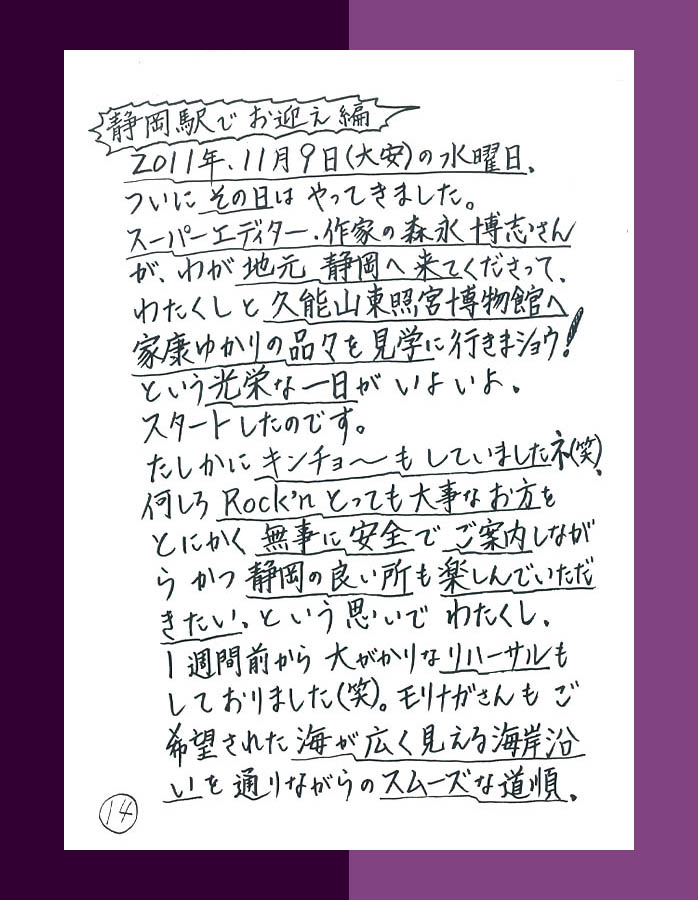 静岡駅でお迎え編
2011年、11月9日(大安)の水曜日、
ついにその日はやってきました。
スーパーエディター・作家の森永博志さん
が、わが地元静岡へ来てくださって、
わたくしと久能山東照宮博物館へ
家康ゆかりの品々を見学に行きまショウ!
という光栄な一日がいよいよ、
スタートしたのです。
たしかにキンチョ〜もしていましたネ(笑)、
何しろRock'nとっても大事なお方を
とにかく無事に安全でご案内しなが
らかつ静岡の良い所も楽しんでいただ
きたい、という思いでわたくし、
1週間前から大がかりなリハーサルも
しておりました(笑)。モリナガさんもご
希望された海が広く見える海岸沿
いを通りながらのスムーズな道順、
14